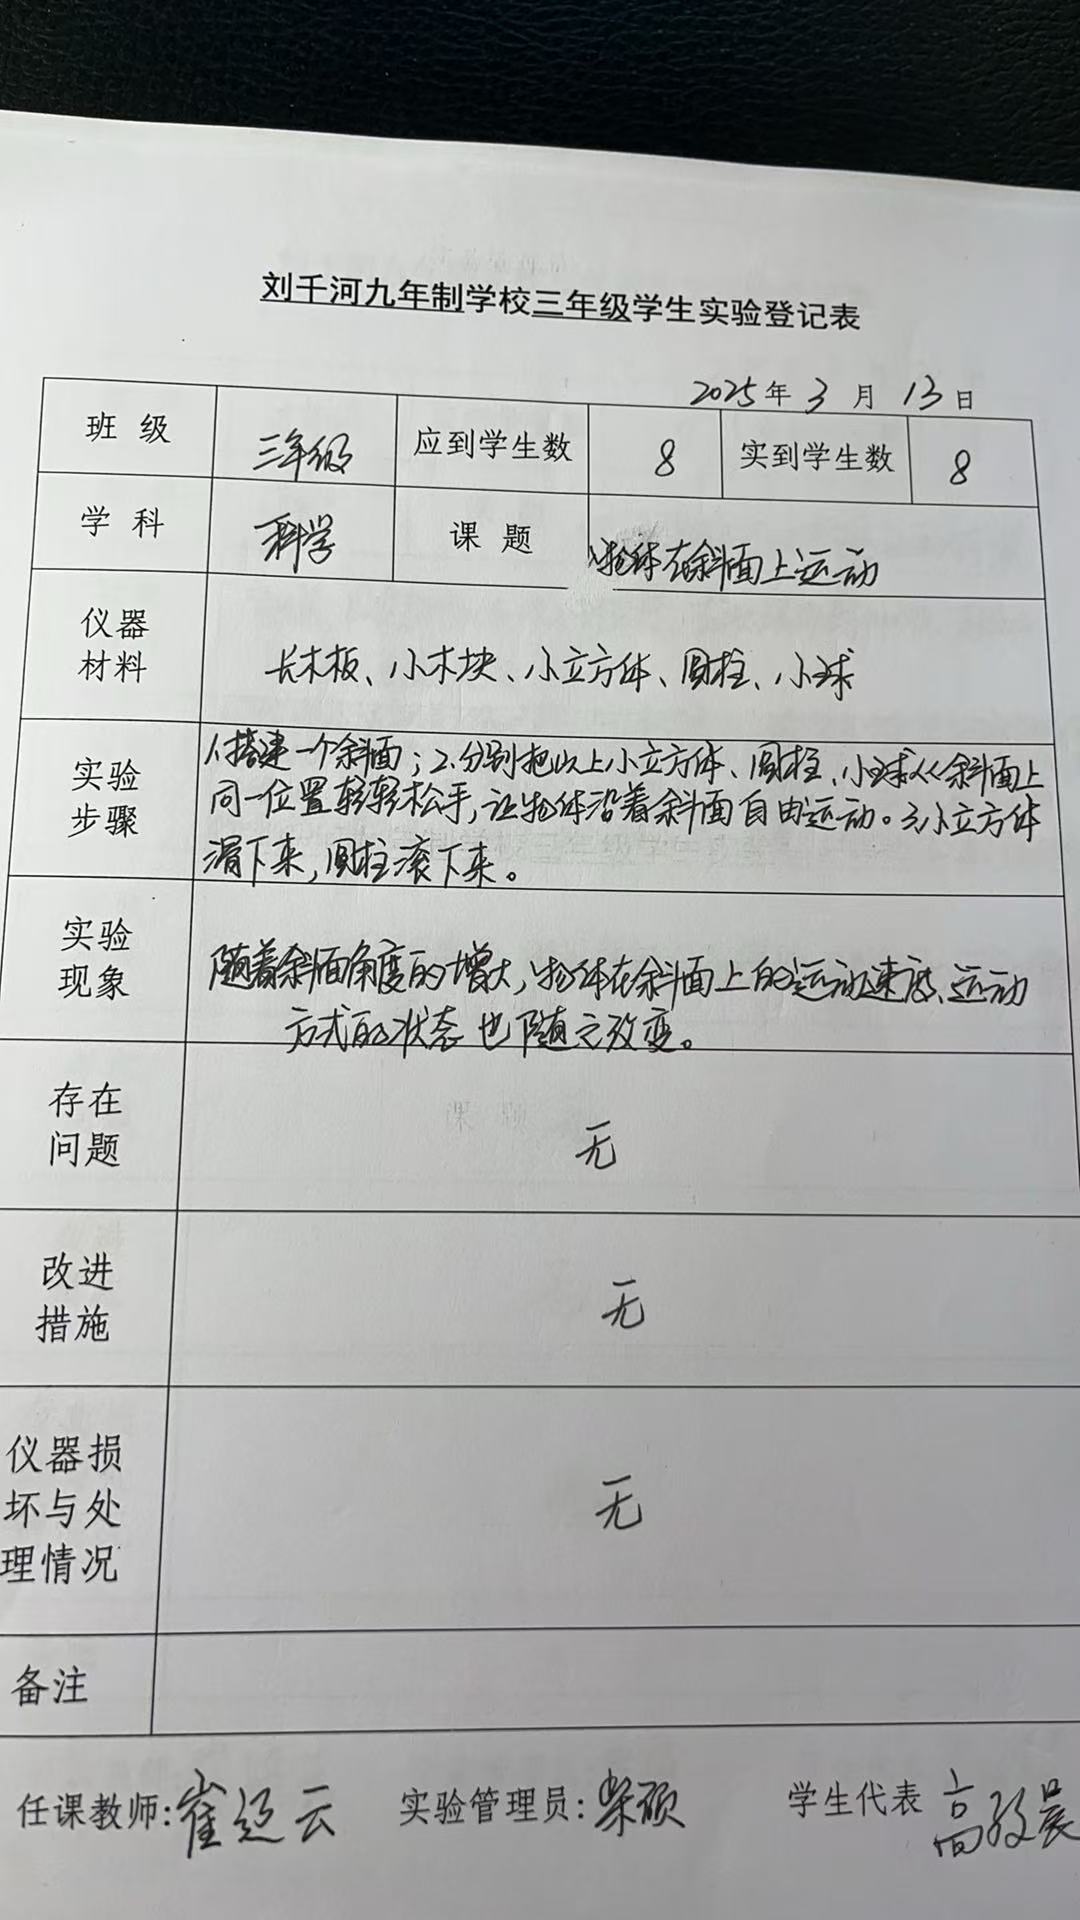 刘千河九年制学校三年级学生实验登记表
2025年 3 月 13日
班 级 三年级 应到学生数 8 实到学生数 8
学 科 科学 课 题 物体在斜面上运动
仪器
材料
长木板、小木块、小立方体、圆柱、小球
实验
步骤
1.搭建一个斜面；2.分别把以上小立方体、圆柱、小球从斜面上
同一位置轻轻松手，让物体沿着斜面自由运动。3.小立方体
滑下来，圆柱滚下来。
实验
现象
随着斜面角度的增大，物体在斜面上的运动速度、运动
方式的状态也随之改变。
存在
问题
无
改进
措施
无
仪器损
坏与处
理情况
无
备注
任课教师:崔延云 实验管理员:柴硕 学生代表 高晨